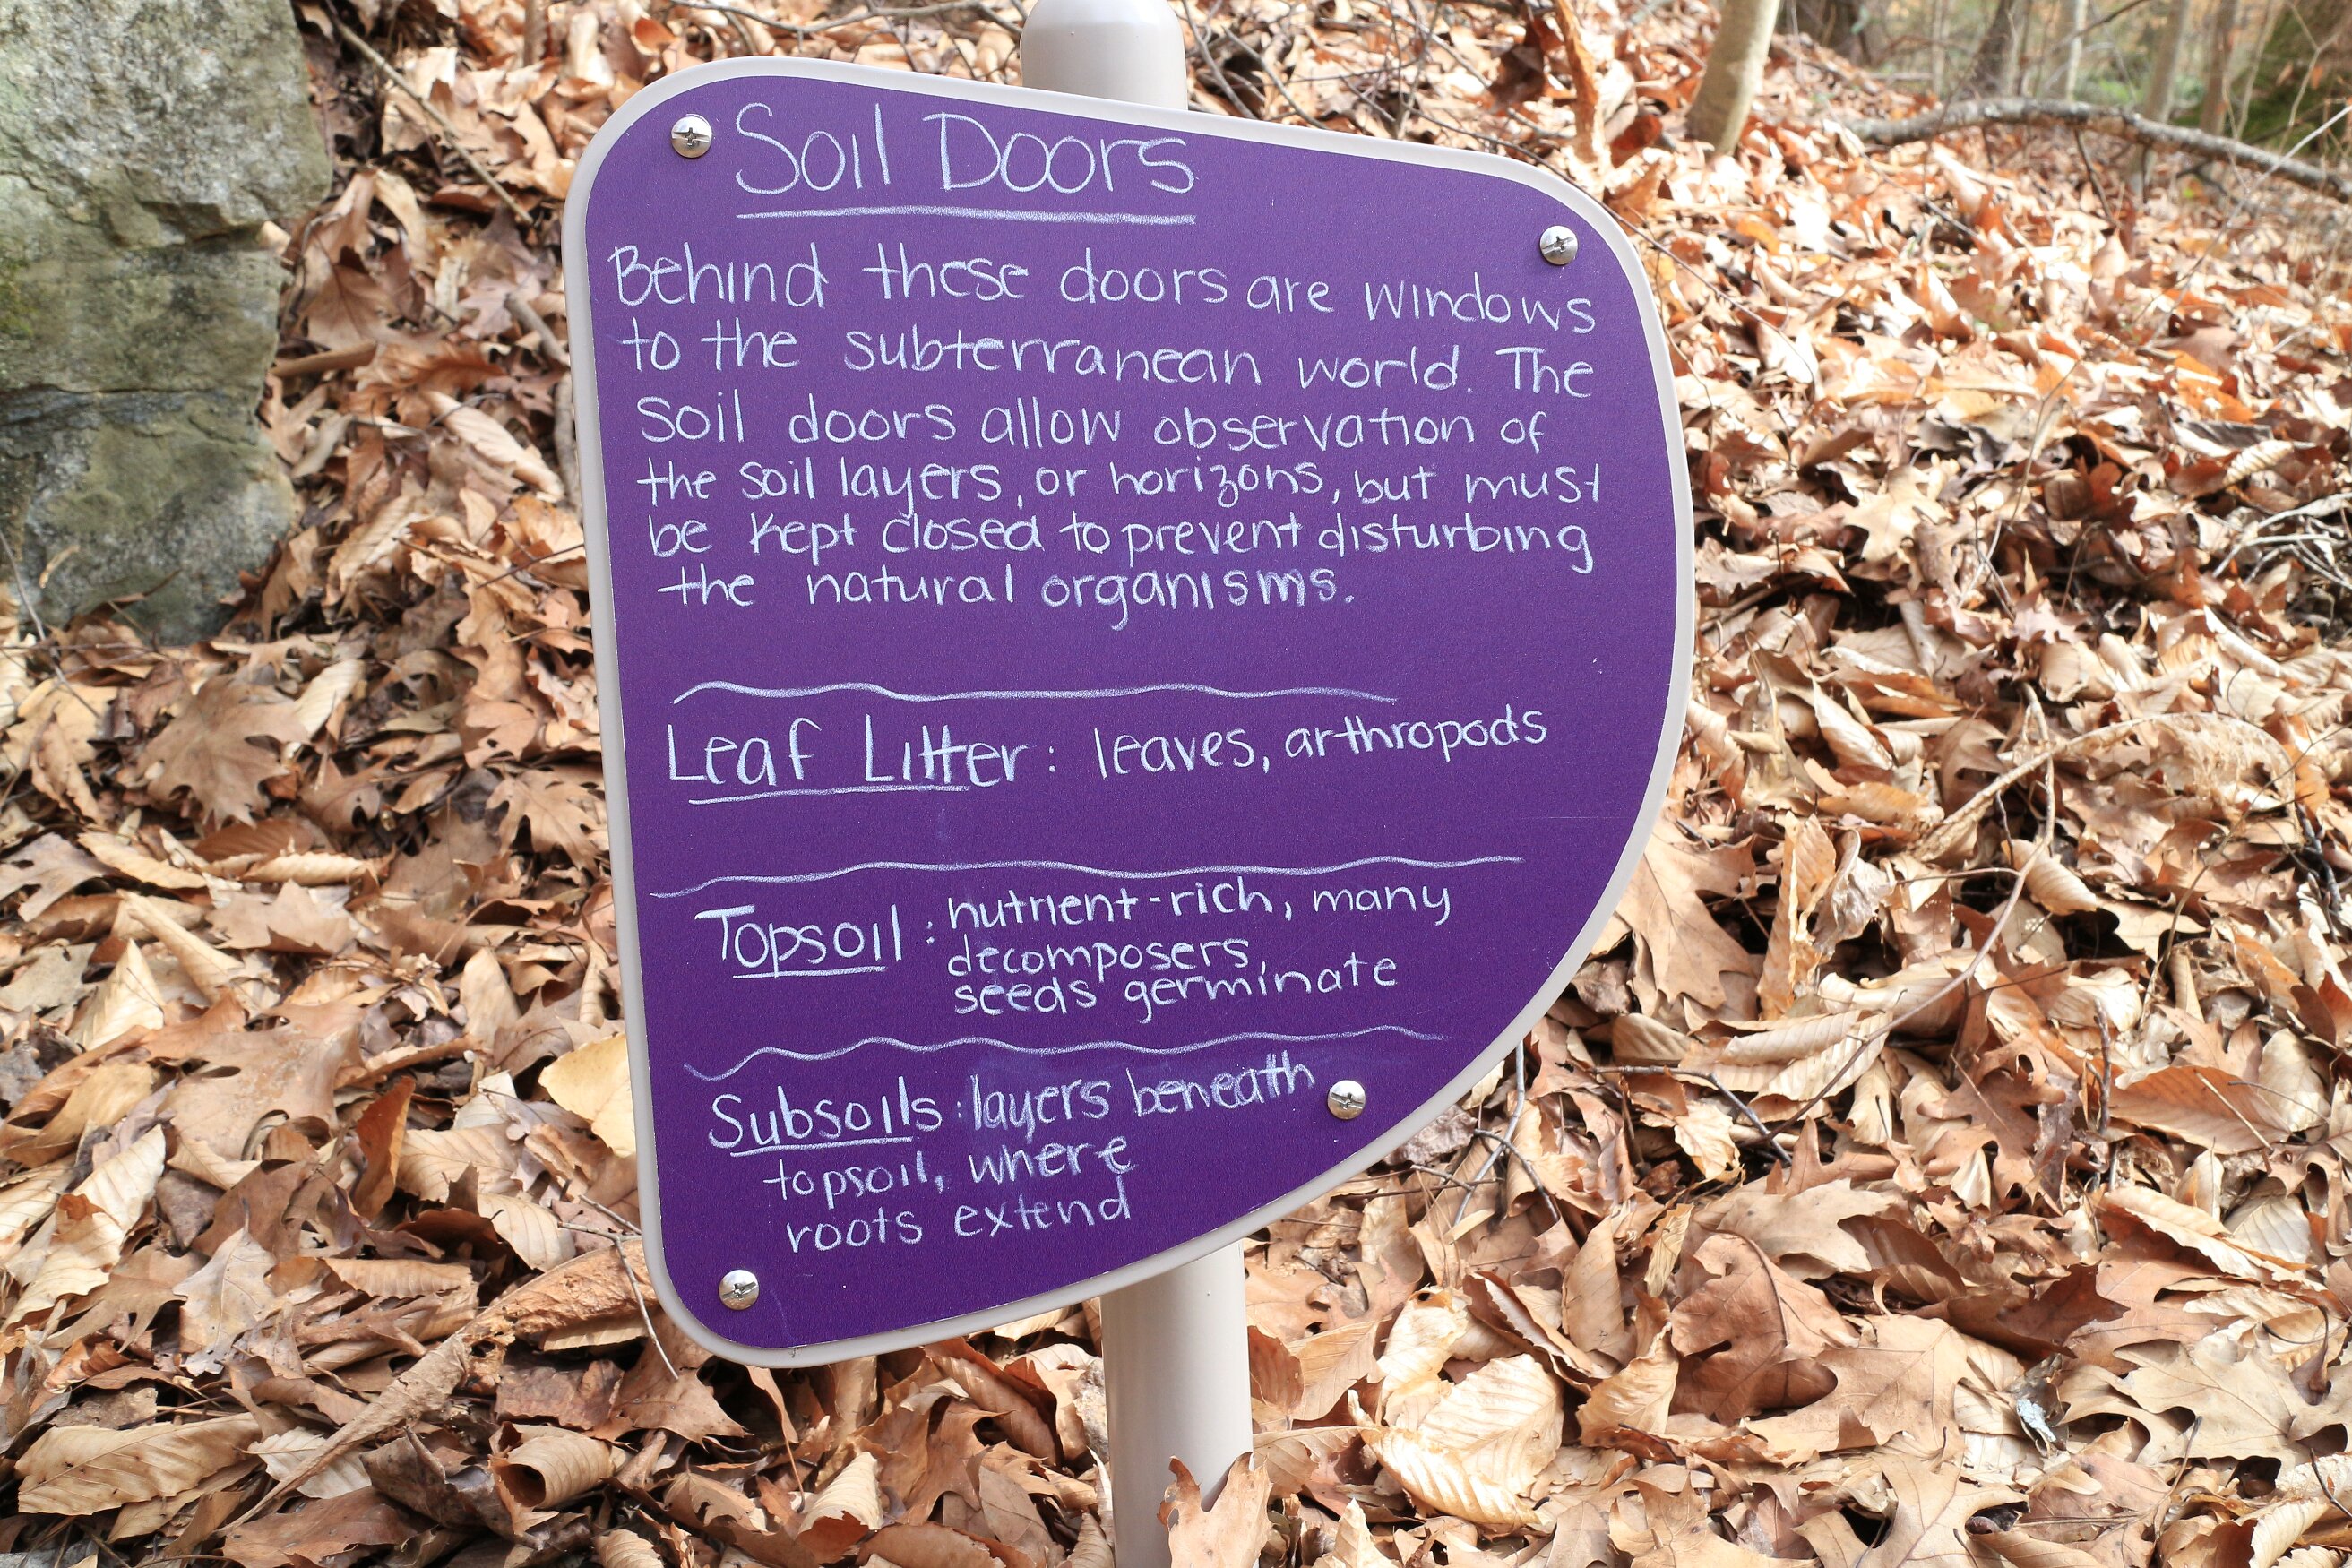 Soil Doors
Behind these doors are windows
to the subterranean world. The
soil doors allow observation of
the soil layers, or horizons, but must
be kept closed to prevent disturbing
the natural organisms.
Leaf Litter: leaves, arthropods
Topsoil: nutrient-rich, many
decomposers,
seeds germinate
Subsoils: layers beneath
topsoil, where
roots extend